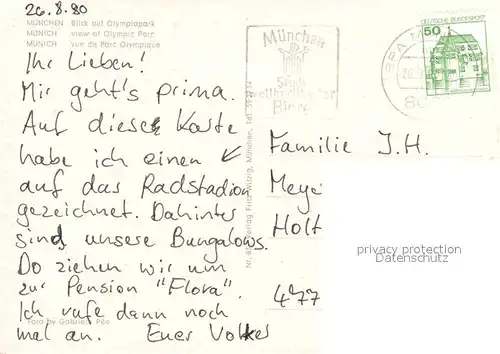 26.8.80
MÜNCHEN Blick auf Olympiapark
MUNICH view of Olympic Parc
MUNICH vue de Parc Olympique
Ihr Lieben!
Mir geht's prima.
Auf dieser Karte
habe ich einen ↙
auf das Radstadion
gezeichnet. Dahinter
sind unsere Bungalows.
Do ziehen wir um
zur Pension "Flora".
Ich rufe dann noch
mal an. Euer Volker
Foto by Gabriele
Verlag Fritz Witzig, München, Tel.
München
DEUTSCHE BUNDESPOST
50
Familie J.H.
Meye
Holt
477
privacy protection
Datenschutz